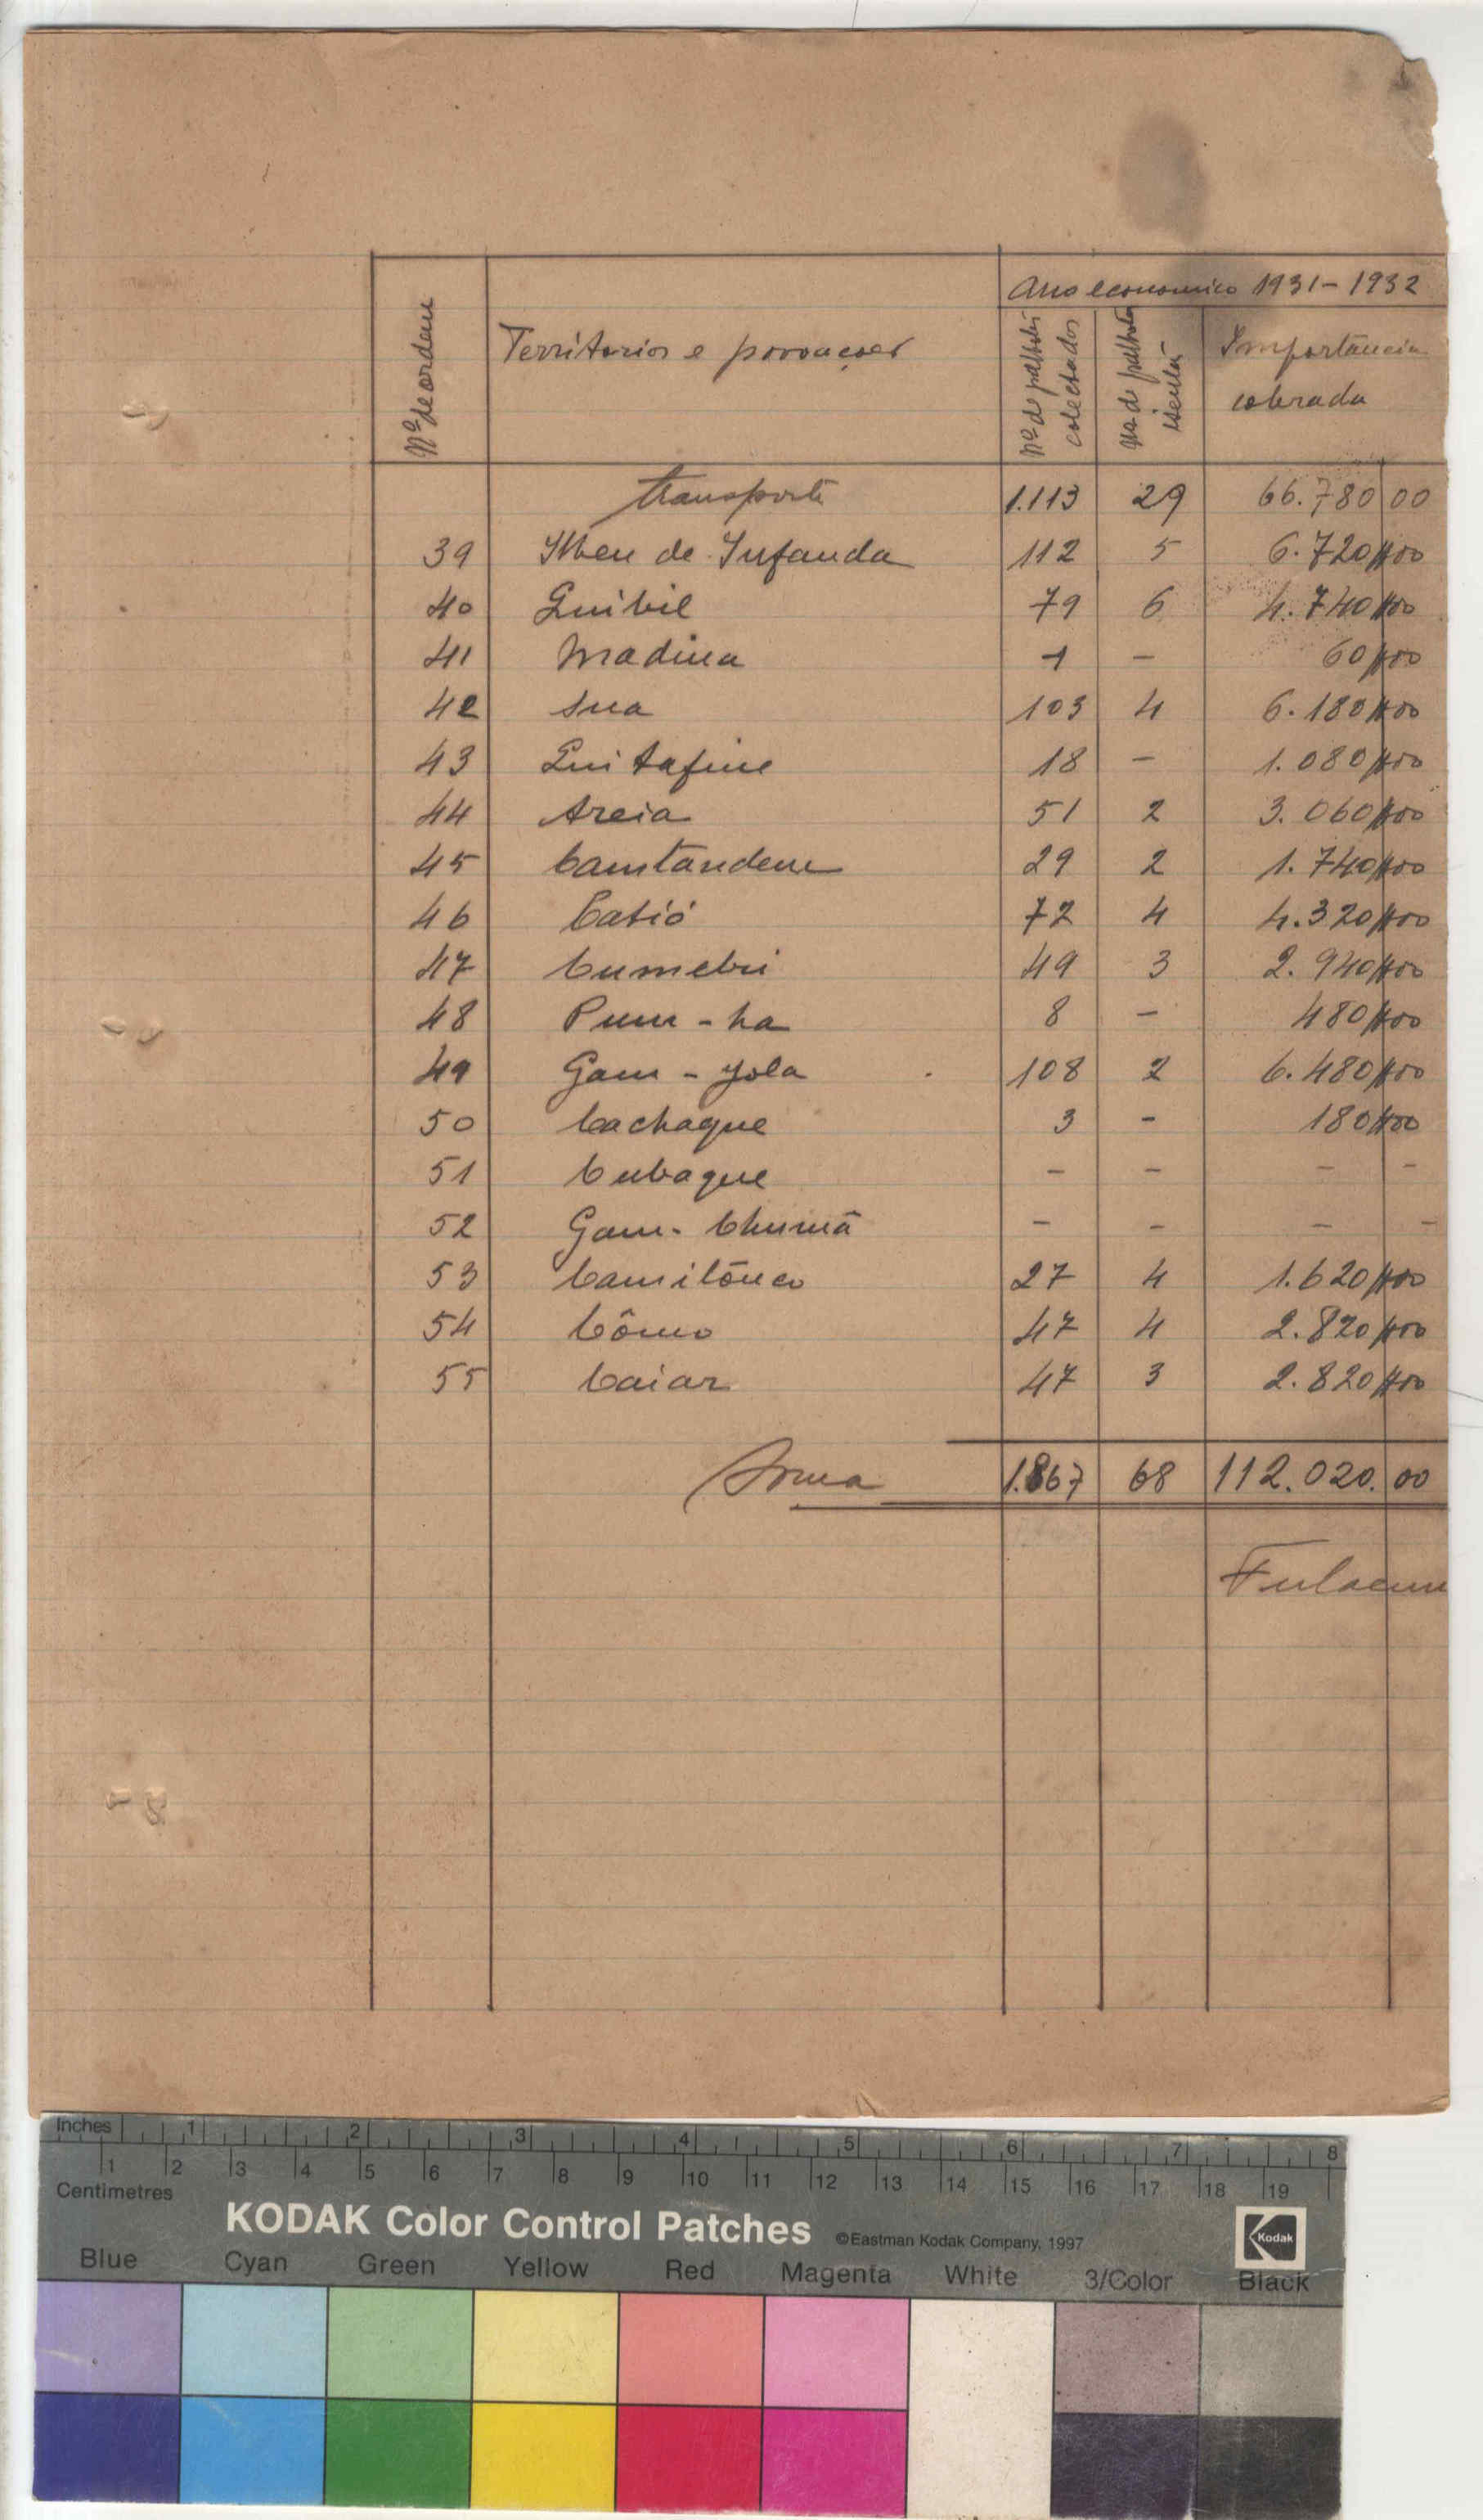 Ano economico 1931-1932
Nº de ordem
Territorios e povoações
Nº de palhotas colectados
Nº de palhotas isentas
Importância cobrada
Transporte 1.113 29 66.780 00
39 Ilheu de Infanda 112 5 6.720$00
40 Guibil 79 6 4.740$00
41 Madina 1 - 60$00
42 Sua 103 4 6.180$00
43 Quitafine 18 - 1.080$00
44 Areia 51 2 3.060$00
45 Camtandem 29 2 1.740$00
46 Catió 72 4 4.320$00
47 Cumebú 49 3 2.940$00
48 Pum-ha 8 - 480$00
49 Gam-yola 108 2 6.480$00
50 Cachaque 3 - 180$00
51 Cubaque - - - -
52 Gam-Chumã - - - -
53 Camilõnco 27 4 1.620$00
54 Cômo 47 4 2.820$00
55 Caiar 47 3 2.820$00
Soma 1.867 68 112.020.00
Fulacun
Inches 1 2 3 4 5 6 7 8
1 2 3 4 5 6 7 8 9 10 11 12 13 14 15 16 17 18 19
Centimetres
KODAK Color Control Patches ©Eastman Kodak Company, 1997 Kodak
Blue Cyan Green Yellow Red Magenta White 3/Color Black